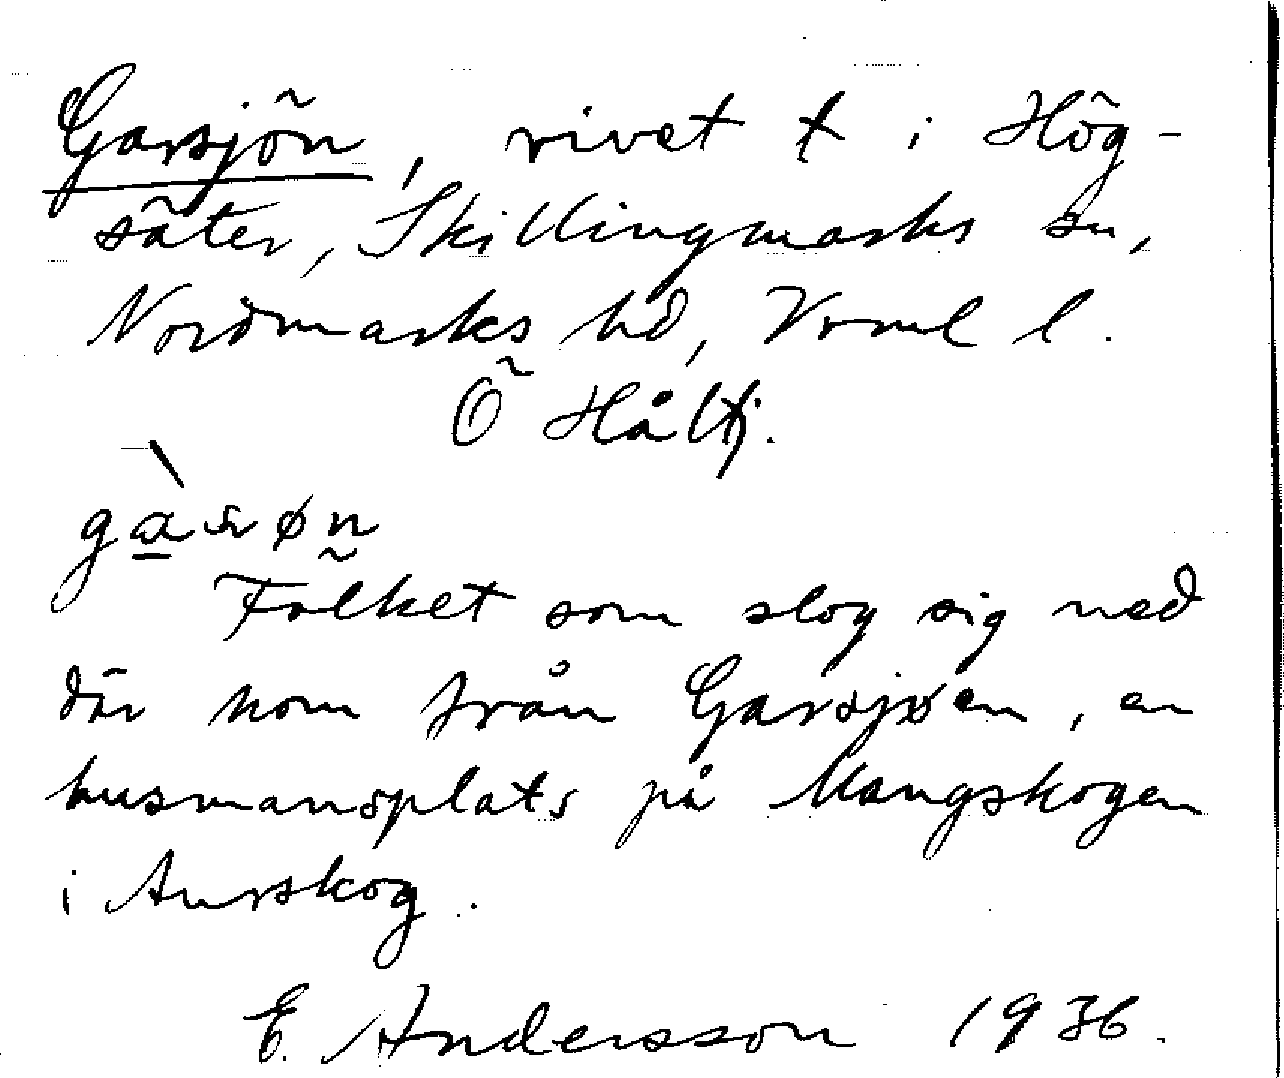 Garsjön, rivet t i Hög-
säter, Skillingmarks sn,
Nordmarks hd, Vrml l.
Ö Håltj.
gàsøn
Folket som slog sig ned
där kom från Garsjøen, en
husmansplats på Mangskogen
i Aurskog.
E. Andersson 1936.